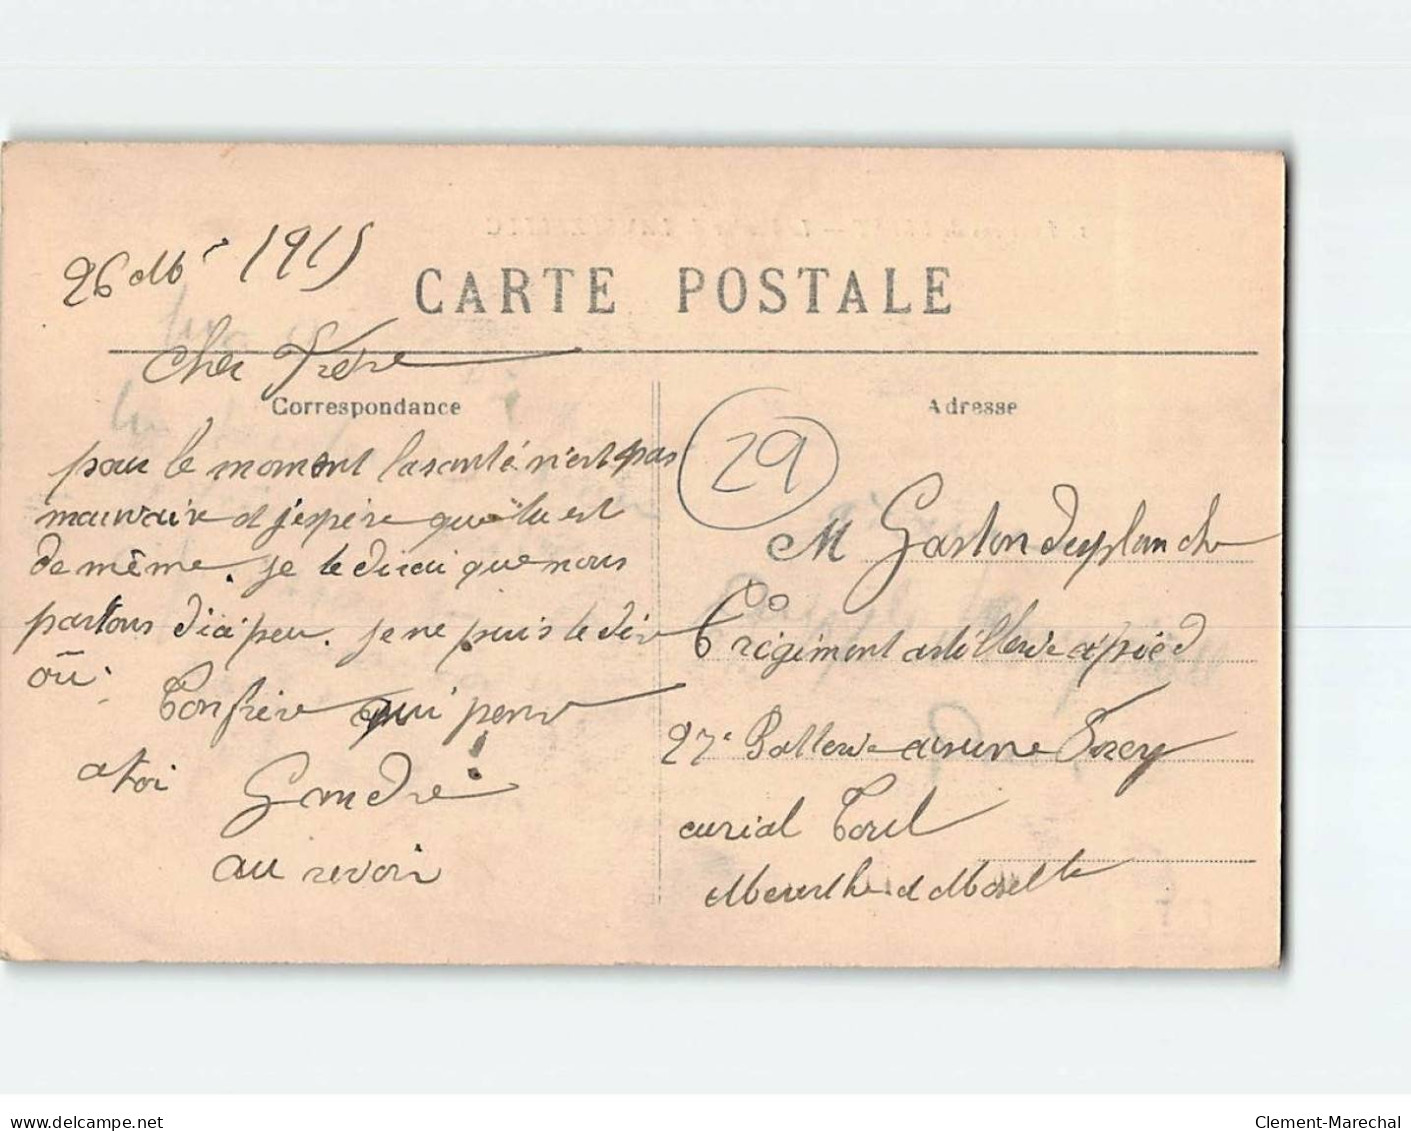 26 Mbr 1915
CARTE POSTALE
Cher Frère
Correspondance
pour le moment la santé n'est pas
mauvaise et j'espère que tu est
de même. je te dirai que nous
partons d'ici peu. je ne puis te dire
où.
Ton frère qui pense
a toi
au revoir
Adresse
29
M Gaston Duplanche
6 régiment artillerie à pied
27e Batterie
Toul
Meurthe et Moselle
www.delcampe.net
Clement-Marechal